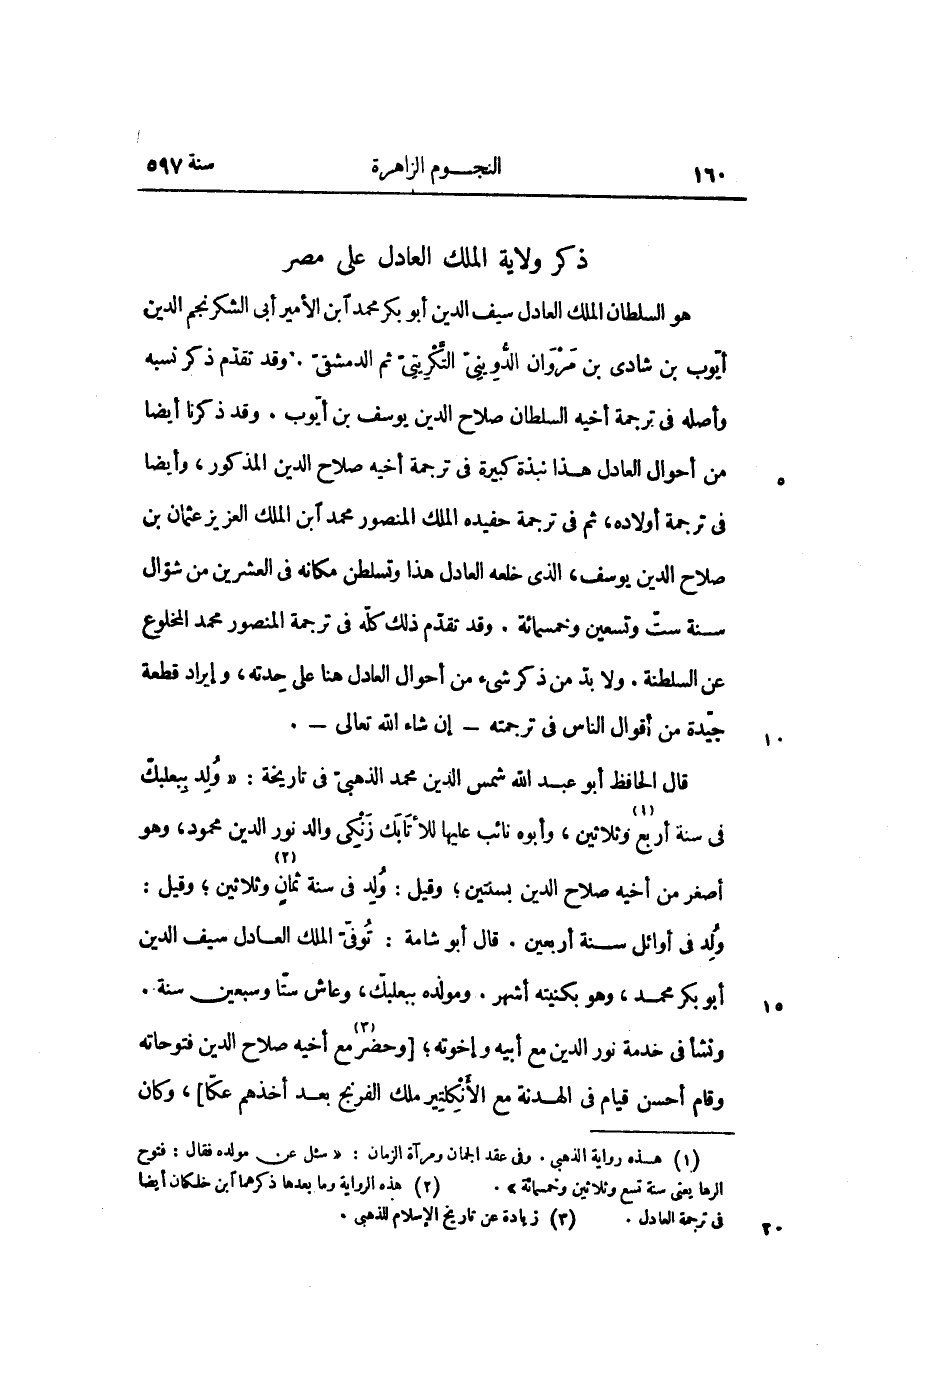 ١٦٠ النجوم الزاهرة سنة ٥٩٧
ذكر ولاية الملك العادل على مصر
هو السلطان الملك العادل سيف الدين أبو بكر محمد آبن الأمير أبى الشكر نجم الدين
أيّوب بن شادى بن مَرْوَان الدُّوِينىّ التَّكْرِيتىّ ثم الدمشقىّ . وقد تقدّم ذكر نسبه
وأصله فى ترجمة أخيه السلطان صلاح الدين يوسف بن أيّوب . وقد ذكرنا أيضا
من أحوال العادل هذا نبذة كبيرة فى ترجمة أخيه صلاح الدين المذكور ، وأيضا
٥
فى ترجمة أولاده، ثم فى ترجمة حفيده الملك المنصور محمد آبن الملك العزيز عثمان بن
صلاح الدين يوسف، الذى خلعه العادل هذا وتسلطن مكانه فى العشرين من شوّال
سنة ستّ وتسعين وخمسمائة . وقد تقدّم ذلك كلّه فى ترجمة المنصور محمد المخلوع
عن السلطنة . ولا بدّ من ذكر شىء من أحوال العادل هنا على حِدته، وإيراد قطعة
جيّدة من أقوال الناس فى ترجمته — إن شاء الله تعالى — .
١٠
قال الحافظ أبو عبد الله شمس الدين محمد الذهبىّ فى تاريخة : « وُلِد ببعلبكّ
فى سنة أربع (١) وثلاثين ، وأبوه نائب عليها للأتَابَك زَنْكِى والد نور الدين محمود، وهو
أصغر من أخيه صلاح الدين بسنتين ؛ وقيل : وُلِد فى سنة ثمان (٢) وثلاثين ؛ وقيل :
وُلِد فى أوائل سنة أربعين . قال أبو شامة : تُوفّى الملك العادل سيف الدين
أبو بكر محمد ، وهو بكنيته أشهر . ومولده ببعلبكّ، وعاش ستّا وسبعين سنة .
١٥
ونشأ فى خدمة نور الدين مع أبيه وإخوته؛ [وحضر (٣) مع أخيه صلاح الدين فتوحاته
وقام أحسن قيام فى الهدنة مع الأَنْكِلتِير ملك الفرنج بعد أخذهم عكّا] ، وكان
(١) هذه رواية الذهبى . وفى عقد الجمان ومرآة الزمان : « سئل عن مولده فقال : فتوح
الرها يعنى سنة تسع وثلاثين وخمسمائة » . (٢) هذه الرواية وما بعدها ذكرهما آبن خلكان أيضا
فى ترجمة العادل . (٣) زيادة عن تاريخ الإسلام للذهبى .
٢٠